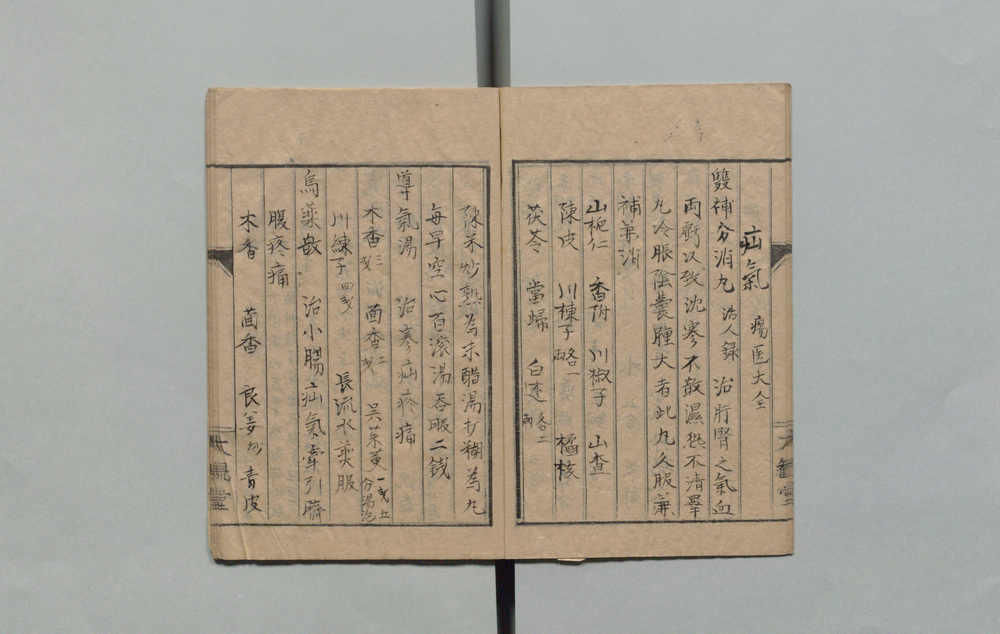 疝氣 瘍医大全
雙補分消丸 浩人録 治肝腎之氣血
兩虧以致沈寒不散濕熱不清睪
丸冷脹陰囊腫大者此丸久服兼
補兼消
山梔仁 香附 川椒子 山查
陳皮 川楝子略一 橘核
茯苓 當歸 白述各二兩
陳米炒熟為末醋湯打糊為丸
每早空心百滾湯吞服二錢
導氣湯 治寒疝疼痛
木香三戔 茴香二戔 吳茱萸一戔五分湯泡
川練子四戔 長流水煎服
烏藥散 治小腸疝氣牽引臍
腹疼痛
木香 茴香 良姜炒 青皮